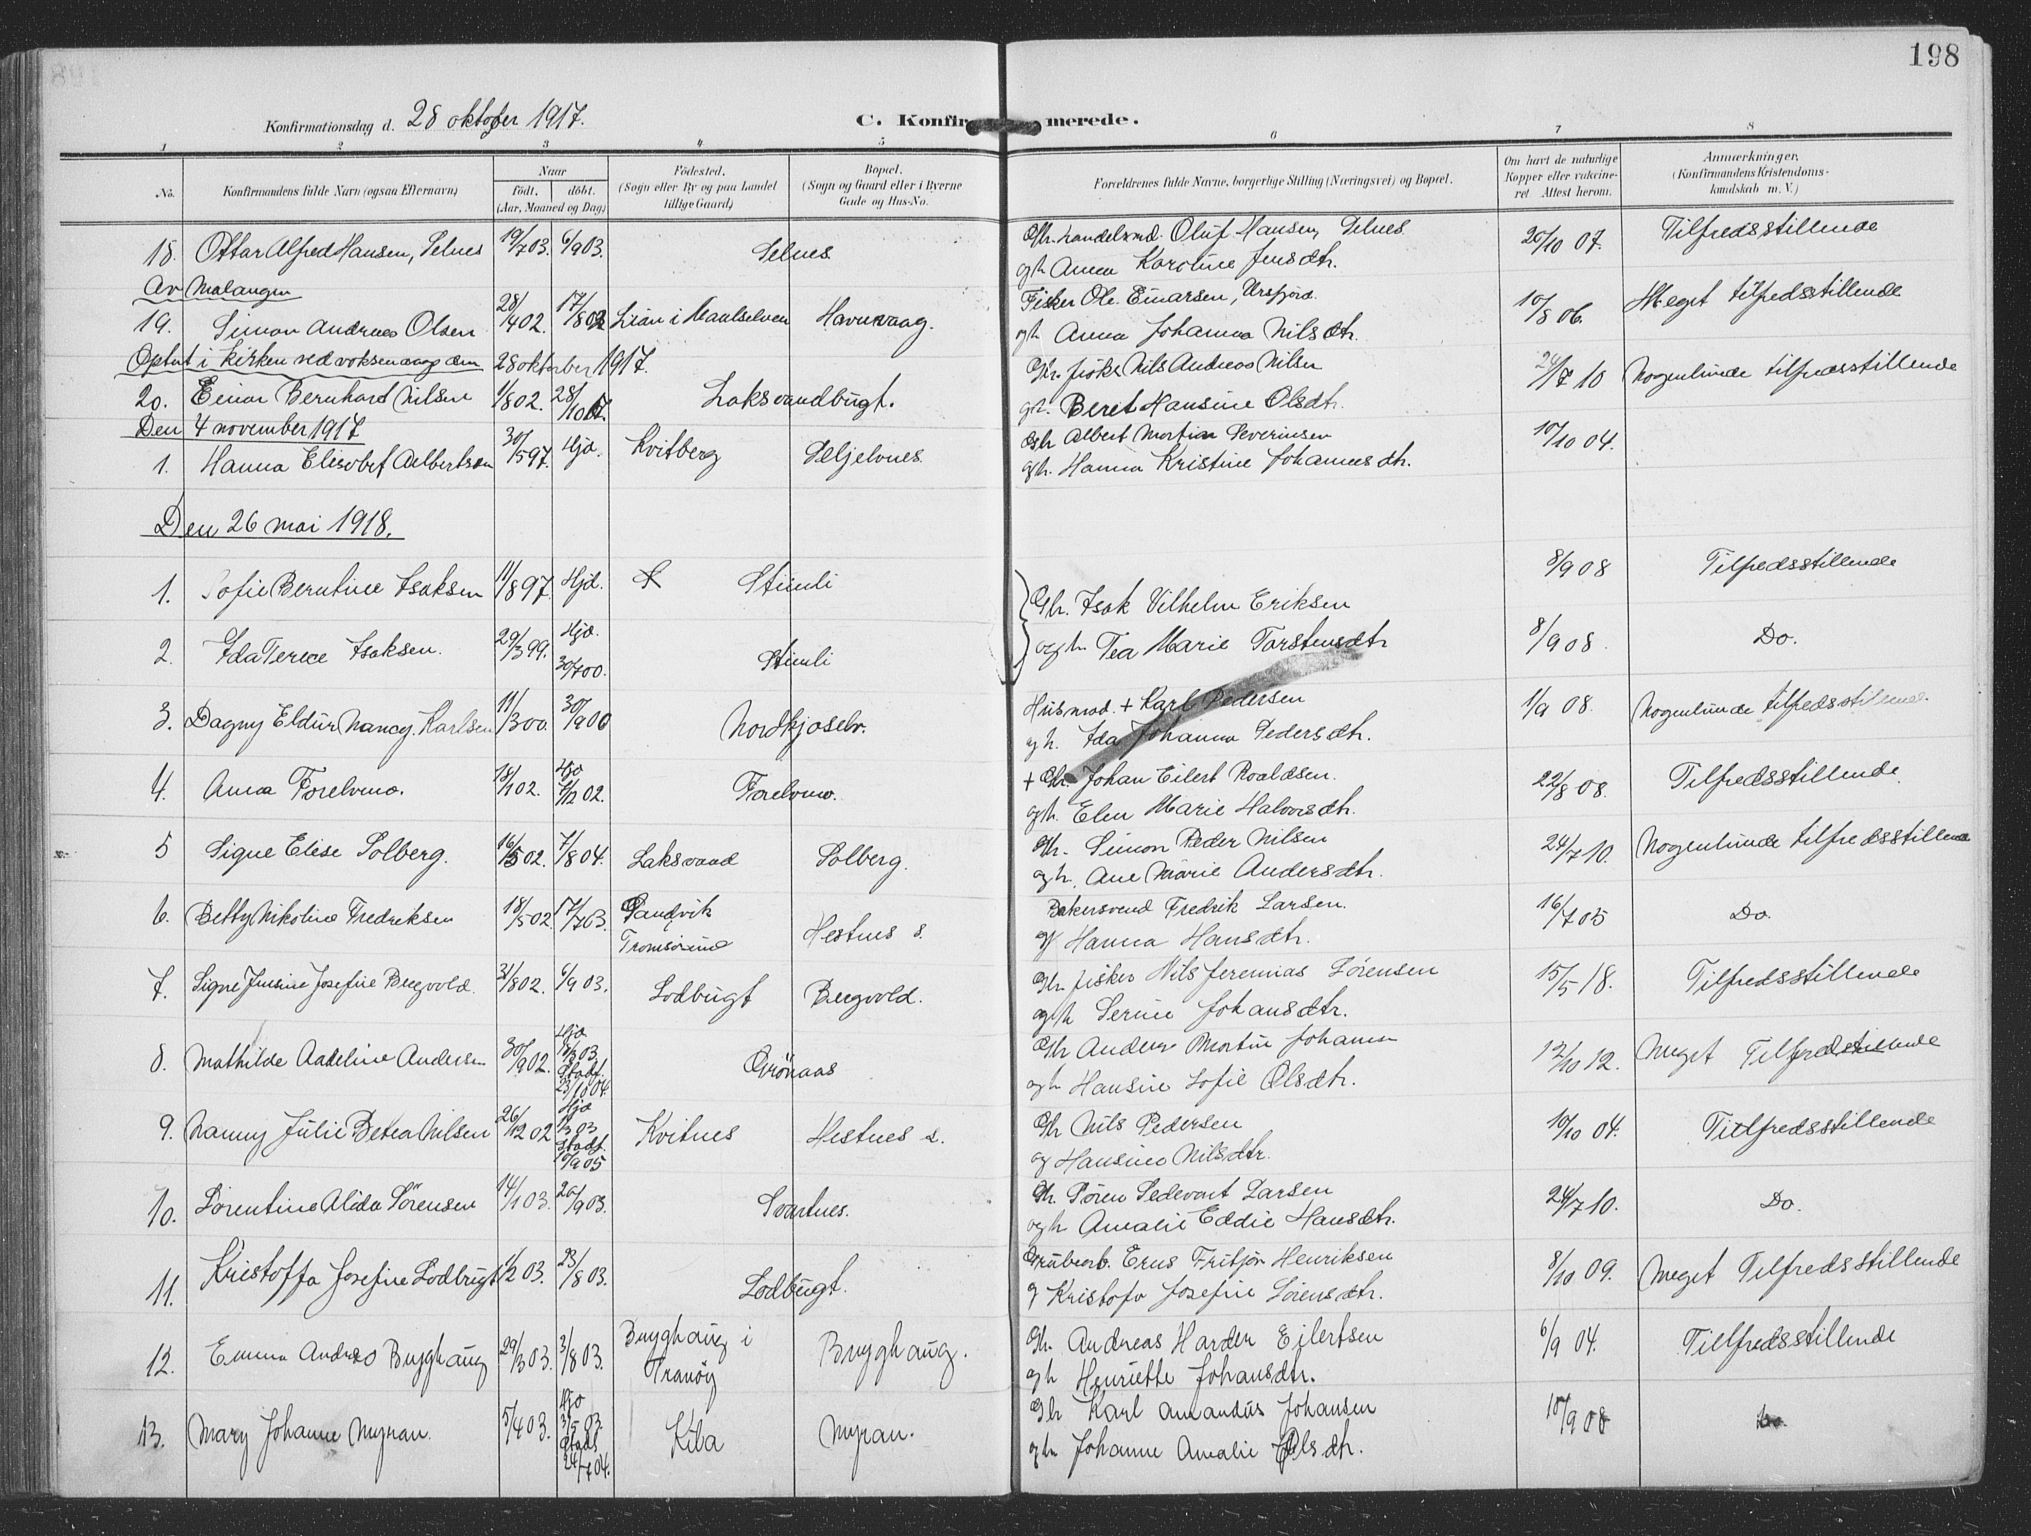 198
Konfirmationsdag d. 28 oktober 1917.
C. Konfirmerede.
1 2 3 4 5 6 7 8
No.
Konfirmandens fulde Navn (ogsaa Efternavn)
Naar
født. døbt.
(Aar, Maaned og Dag)
Fødested.
(Sogn eller By og paa Landet
tillige Gaard)
Bopæl.
(Sogn og Gaard eller i Byerne
Gade og Hus-No.
Forældrenes fulde Navne, borgerlige Stilling (Næringsvei) og Bopæl.
Om havt de naturlige
Kopper eller vakcine-
ret Attest herom.
Anmærkninger,
(Konfirmandens Kristendoms-
kundskab m. V.)
18. Ottar Alfred Hansen, Selnes 19/7 03. 6/9 03. Selnes Gbr. handelsmd. Oluf Hansen, Selnes 20/10 07. Tilfredsstillende
og h Anna Karoline Jensdtr.
Av Malangen
19. Simon Andreas Olsen 28/4 02. 17/8 02 Lian i Maalselven Havnvaag. Fisker Ole Einarsen, Ursfjord. 10/8 06. Meget tilfredsstillende
og h Anna Johanna Nilsdtr.
Optat i kirken ved voksen daap den 28 oktober 1917.
20. Einar Bernhard Nilsen 1/8 02. 28/10 17. Laksvandbugt. Gbr. fisker Nils Andreas Nilsen 24/7 10 Nogenlunde tilfredsstillende
g.h. Beret Hansine Olsdtr.
Den 4 november 1917
1. Hanna Elisabet Albertsen 30/5 97. Hjd. Kvitberg Seljelvnes Gbr Albert Martin Severinsen 10/10 04.
og h. Hanna Kristine Johannesdtr.
Den 26 mai 1918.
1. Sofie Berntine Isaksen 11/8 97. Hjd. Stimli 8/9 08 Tilfredsstillende
Gbr. Isak Vilhelm Eriksen
2. Ida Terece Isaksen. 29/3 99. Hjd. 30/7 00. Stimli og h. Tea Marie Torstensdtr 8/9 08. Do.
3. Dagny Eldur Nancy Karlsen 11/3 00. 30/9 00 Nordkjosebt. Husmd. + Karl Pedersen 1/9 08. Nogenlunde tilfredsstillende
g h. Ida Johanna Pedersdtr.
4. Anna Forelvmo. 18/1 02. Hjd /12 02. Forelvmo. + Gbr. Johan Eilert Roaldsen. 22/8 08. Tilfredsstillende
og h. Elen Marie Halvorsdtr.
5 Signe Elise Solberg. 16/5 02. 7/8 04. Laksvand Solberg. Gbr. Simon Peder Nilsen 24/7 10. Nogenlunde tilfredsstillende
og h. Ane Marie Andersdtr.
6. Betty Nikoline Fredriksen 18/5 02. 17/7 03. Sandvik Hestnes s. Bakersvend Fredrik Larsen. 16/7 05 Do.
Tromsøsund g Hanna Hansdtr.
7. Signe Jensine Josefine Bergvold. 31/8 02. 6/9 03. Lodbugt Bergvold. Gbr. fisker Nils Jeremias Sørensen 15/5 18. Tilfredsstillende
og h Serine Johansdtr.
8. Mathilde Aadeline Andersen 30/9 02. Hjd 18/3 03. Stadf. 23/10 04. Grønaas Gbr Anders Martin Johansen 12/10 12. Meget Tilfredstillende
og h Hansine Sofie Olsdtr.
9. Nanny Julie Betea Nilsen 26/12 02 Hjd /3 03 stadf. 10/9 05 Kvitnes Hestnes s. Gbr Nils Pedersen 10/10 04. Tilfredsstillende
og Hansine Nilsdtr.
10. Sørentine Alida Sørensen 14/1 03. 20/9 03. Svartnes. Gbr. Søren Sedevart Larsen 24/7 10. Do.
og h Amalie Eddie Hansdtr.
11. Kristoffa Josefine Lodbugt 1/2 03. 23/8 03. Lodbugt. Grubearb. Erns Fritjov Henriksen 8/10 09. Meget Tilfredsstillende
g Kristofa Josefine Sørensdtr.
12. Emma Andrea Bugghaug 29/3 03. 3/8 03. Bugghaug i Bugghaug. Gbr. Andreas Harder Eilertsen 6/9 04. Tilfredsstillende
Tranøy og h Henriette Johansdtr.
13. Mary Johanne Myran. 5/4 03. Hjd 31/5 03 stadf 24/7 04. Kiba Myran. Gbr Karl Amandus Johansen 10/9 08 Do.
og h Johanne Amalie Olsdtr.